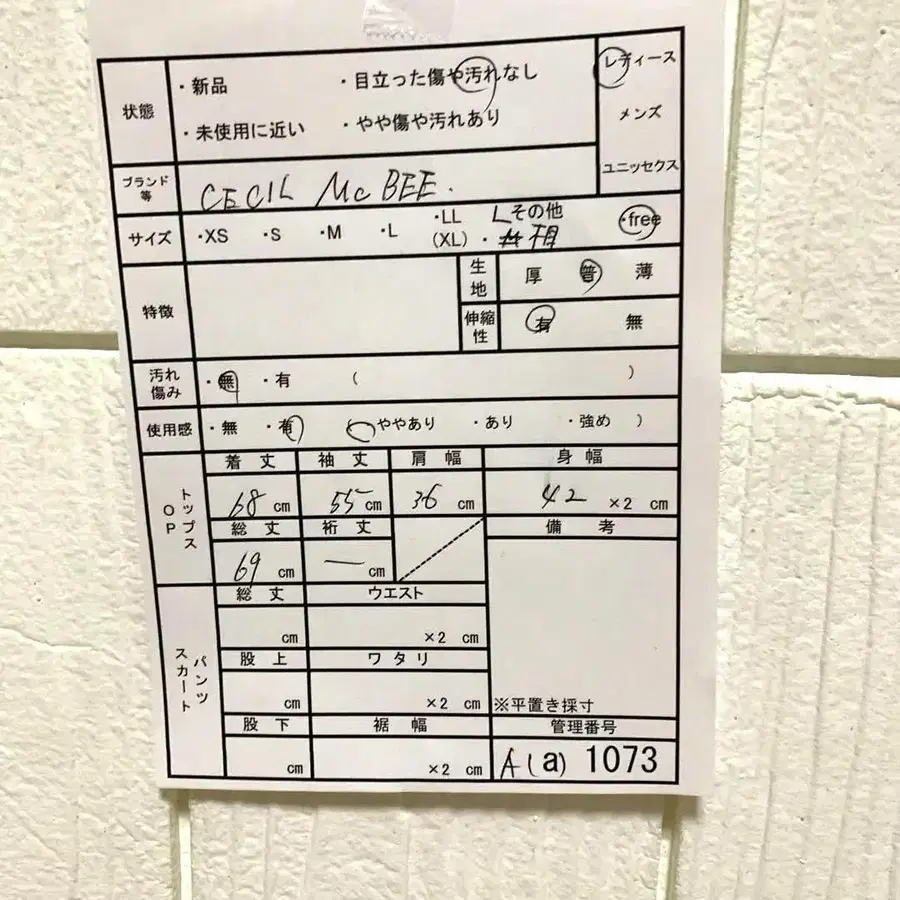 状態
・新品 ・目立った傷や汚れなし
・未使用に近い ・やや傷や汚れあり
レディース
メンズ
ユニセックス
ブランド等 CECIL Mc BEE.
サイズ ・XS ・S ・M ・L ・LL (XL) ・その他 L 相 ・free
特徴
生地 厚 普 薄
伸縮性 有 無
汚れ傷み ・無 ・有 ( )
使用感 ・無 ・有 ( ややあり ・あり ・強め )
トップス OP
着丈 袖丈 肩幅 身幅
68 cm 55 cm 36 cm 42 ×2 cm
総丈 裄丈 備考
69 cm — cm
パンツ スカート
総丈 ウエスト
cm ×2 cm
股上 ワタリ
cm ×2 cm ※平置き採寸
股下 裾幅 管理番号
cm ×2 cm A(a) 1073